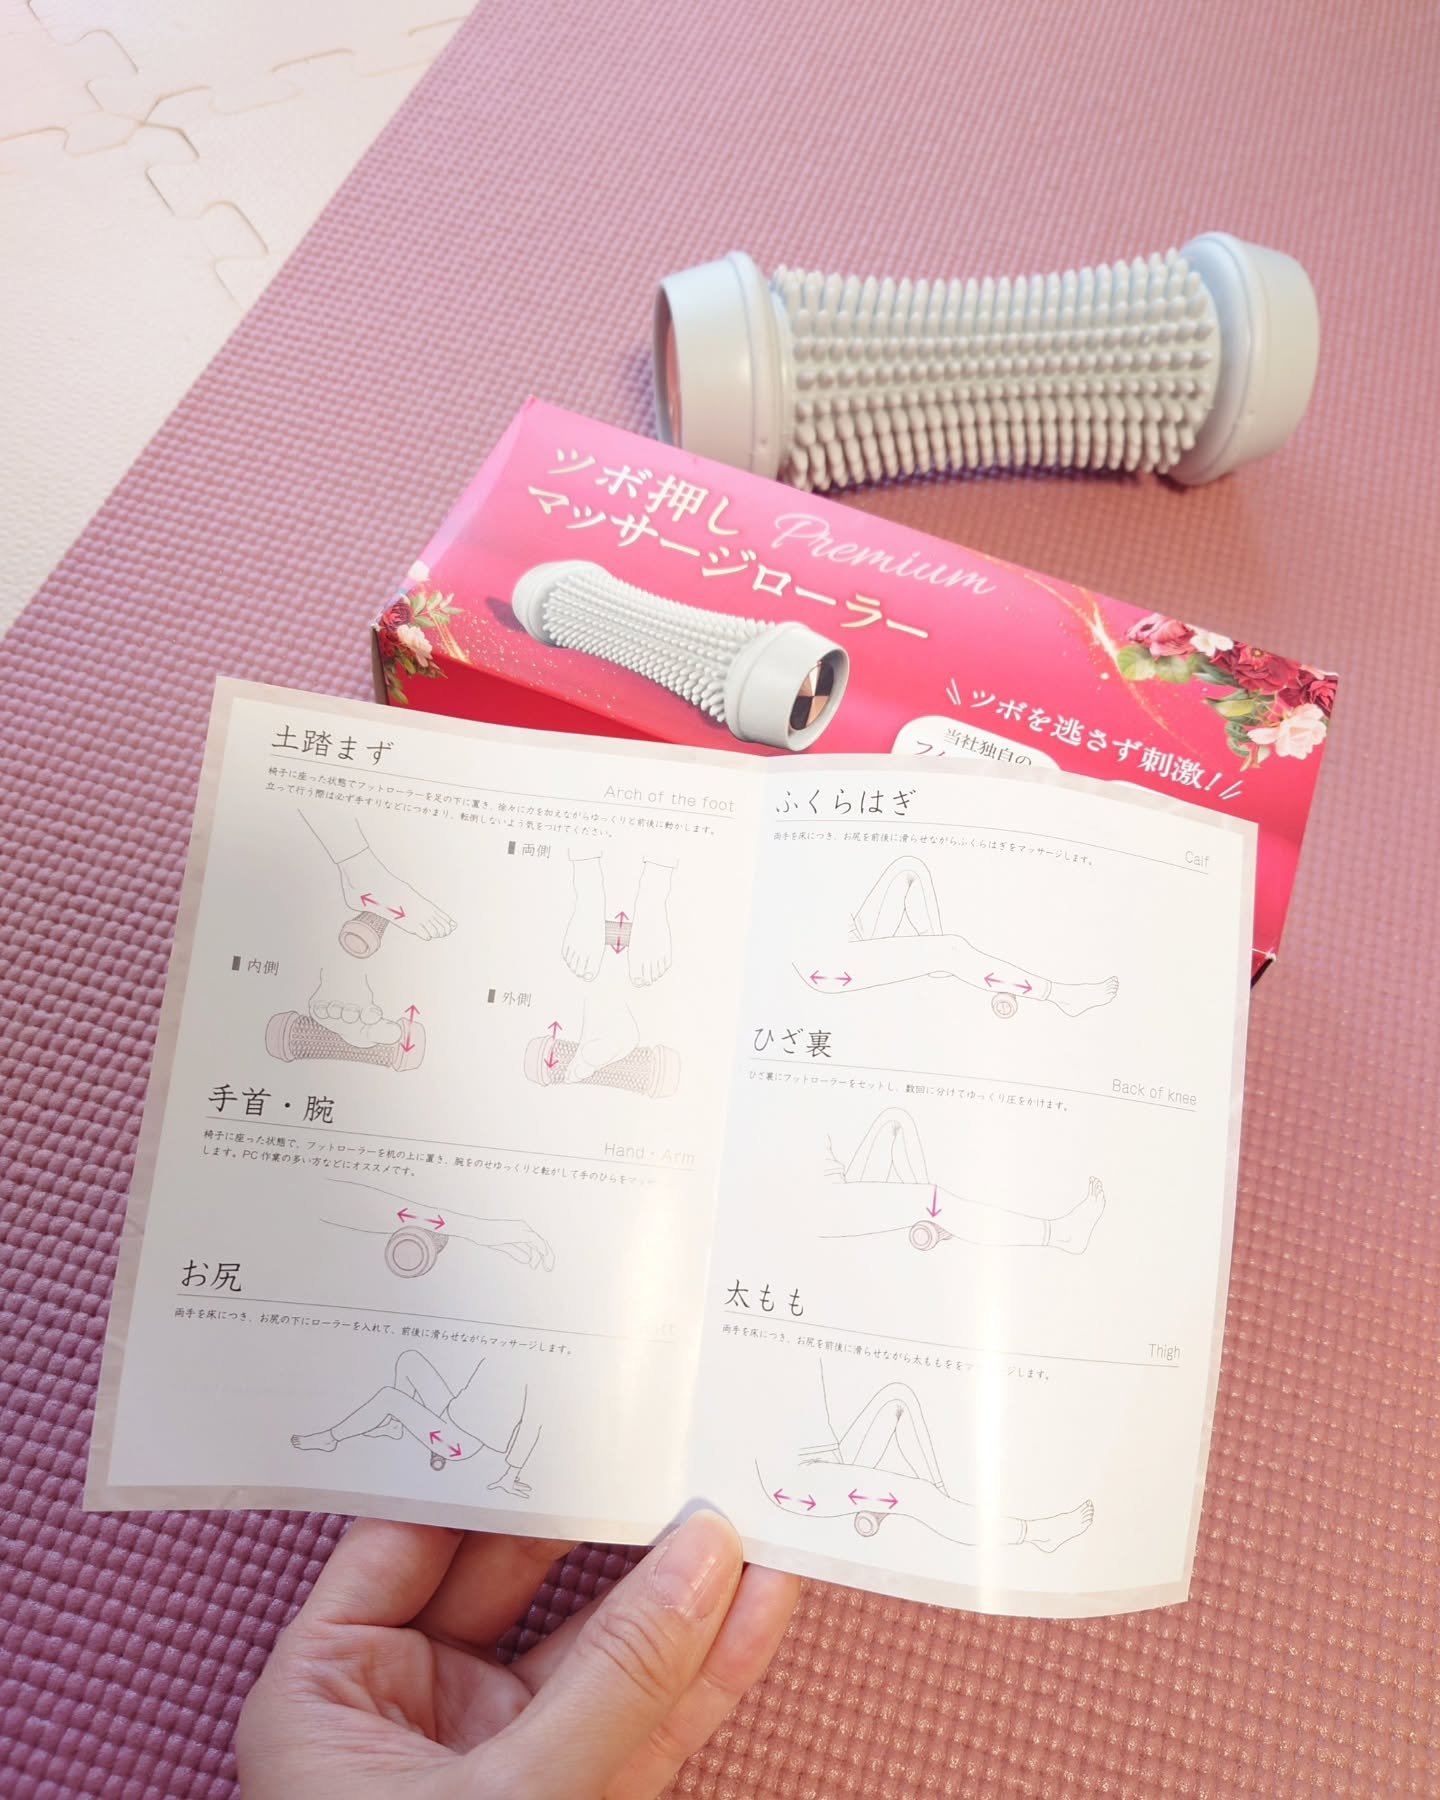 ツボ押し
Premium
マッサージローラー
ツボを逃さず刺激!
当社独自の
土踏まず
Arch of the foot
椅子に座った状態でフットローラーを足の下に置き、徐々に力を加えながらゆっくりと前後に動かします。
立って行う際は必ず手すりなどにつかまり、転倒しないよう気をつけてください。
両側
内側
外側
手首・腕
Hand・Arm
椅子に座った状態で、フットローラーを机の上に置き、腕をのせゆっくりと転がして手のひらをマッ
します。PC作業の多い方などにオススメです。
お尻
両手を床につき、お尻の下にローラーを入れて、前後に滑らせながらマッサージします。
ふくらはぎ
Calf
両手を床につき、お尻を前後に滑らせながらふくらはぎをマッサージします。
ひざ裏
Back of knee
ひざ裏にフットローラーをセットし、数回に分けてゆっくり圧をかけます。
太もも
Thigh
両手を床につき、お尻を前後に滑らせながら太ももををマ ージします。